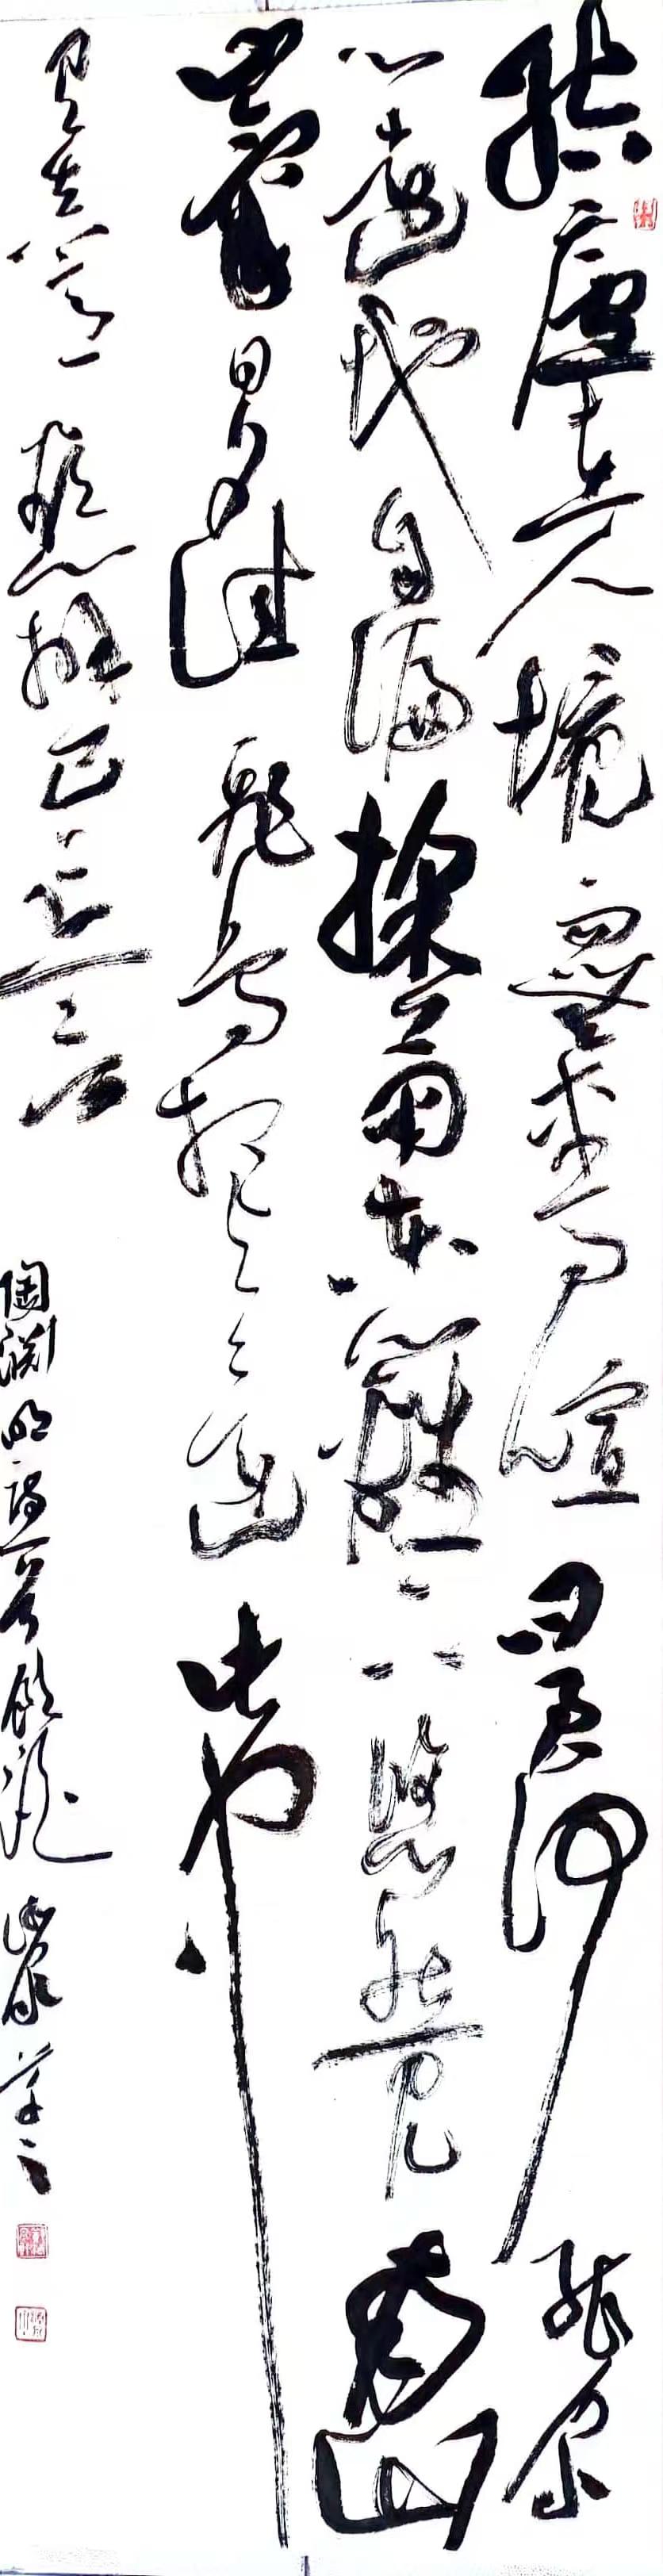 結廬在人境而無車馬喧問君何能爾
心遠地自偏採菊東籬下悠然見南山
山氣日夕佳飛鳥相與還此中
有真意欲辨已忘言
陶淵明詩一首 草之